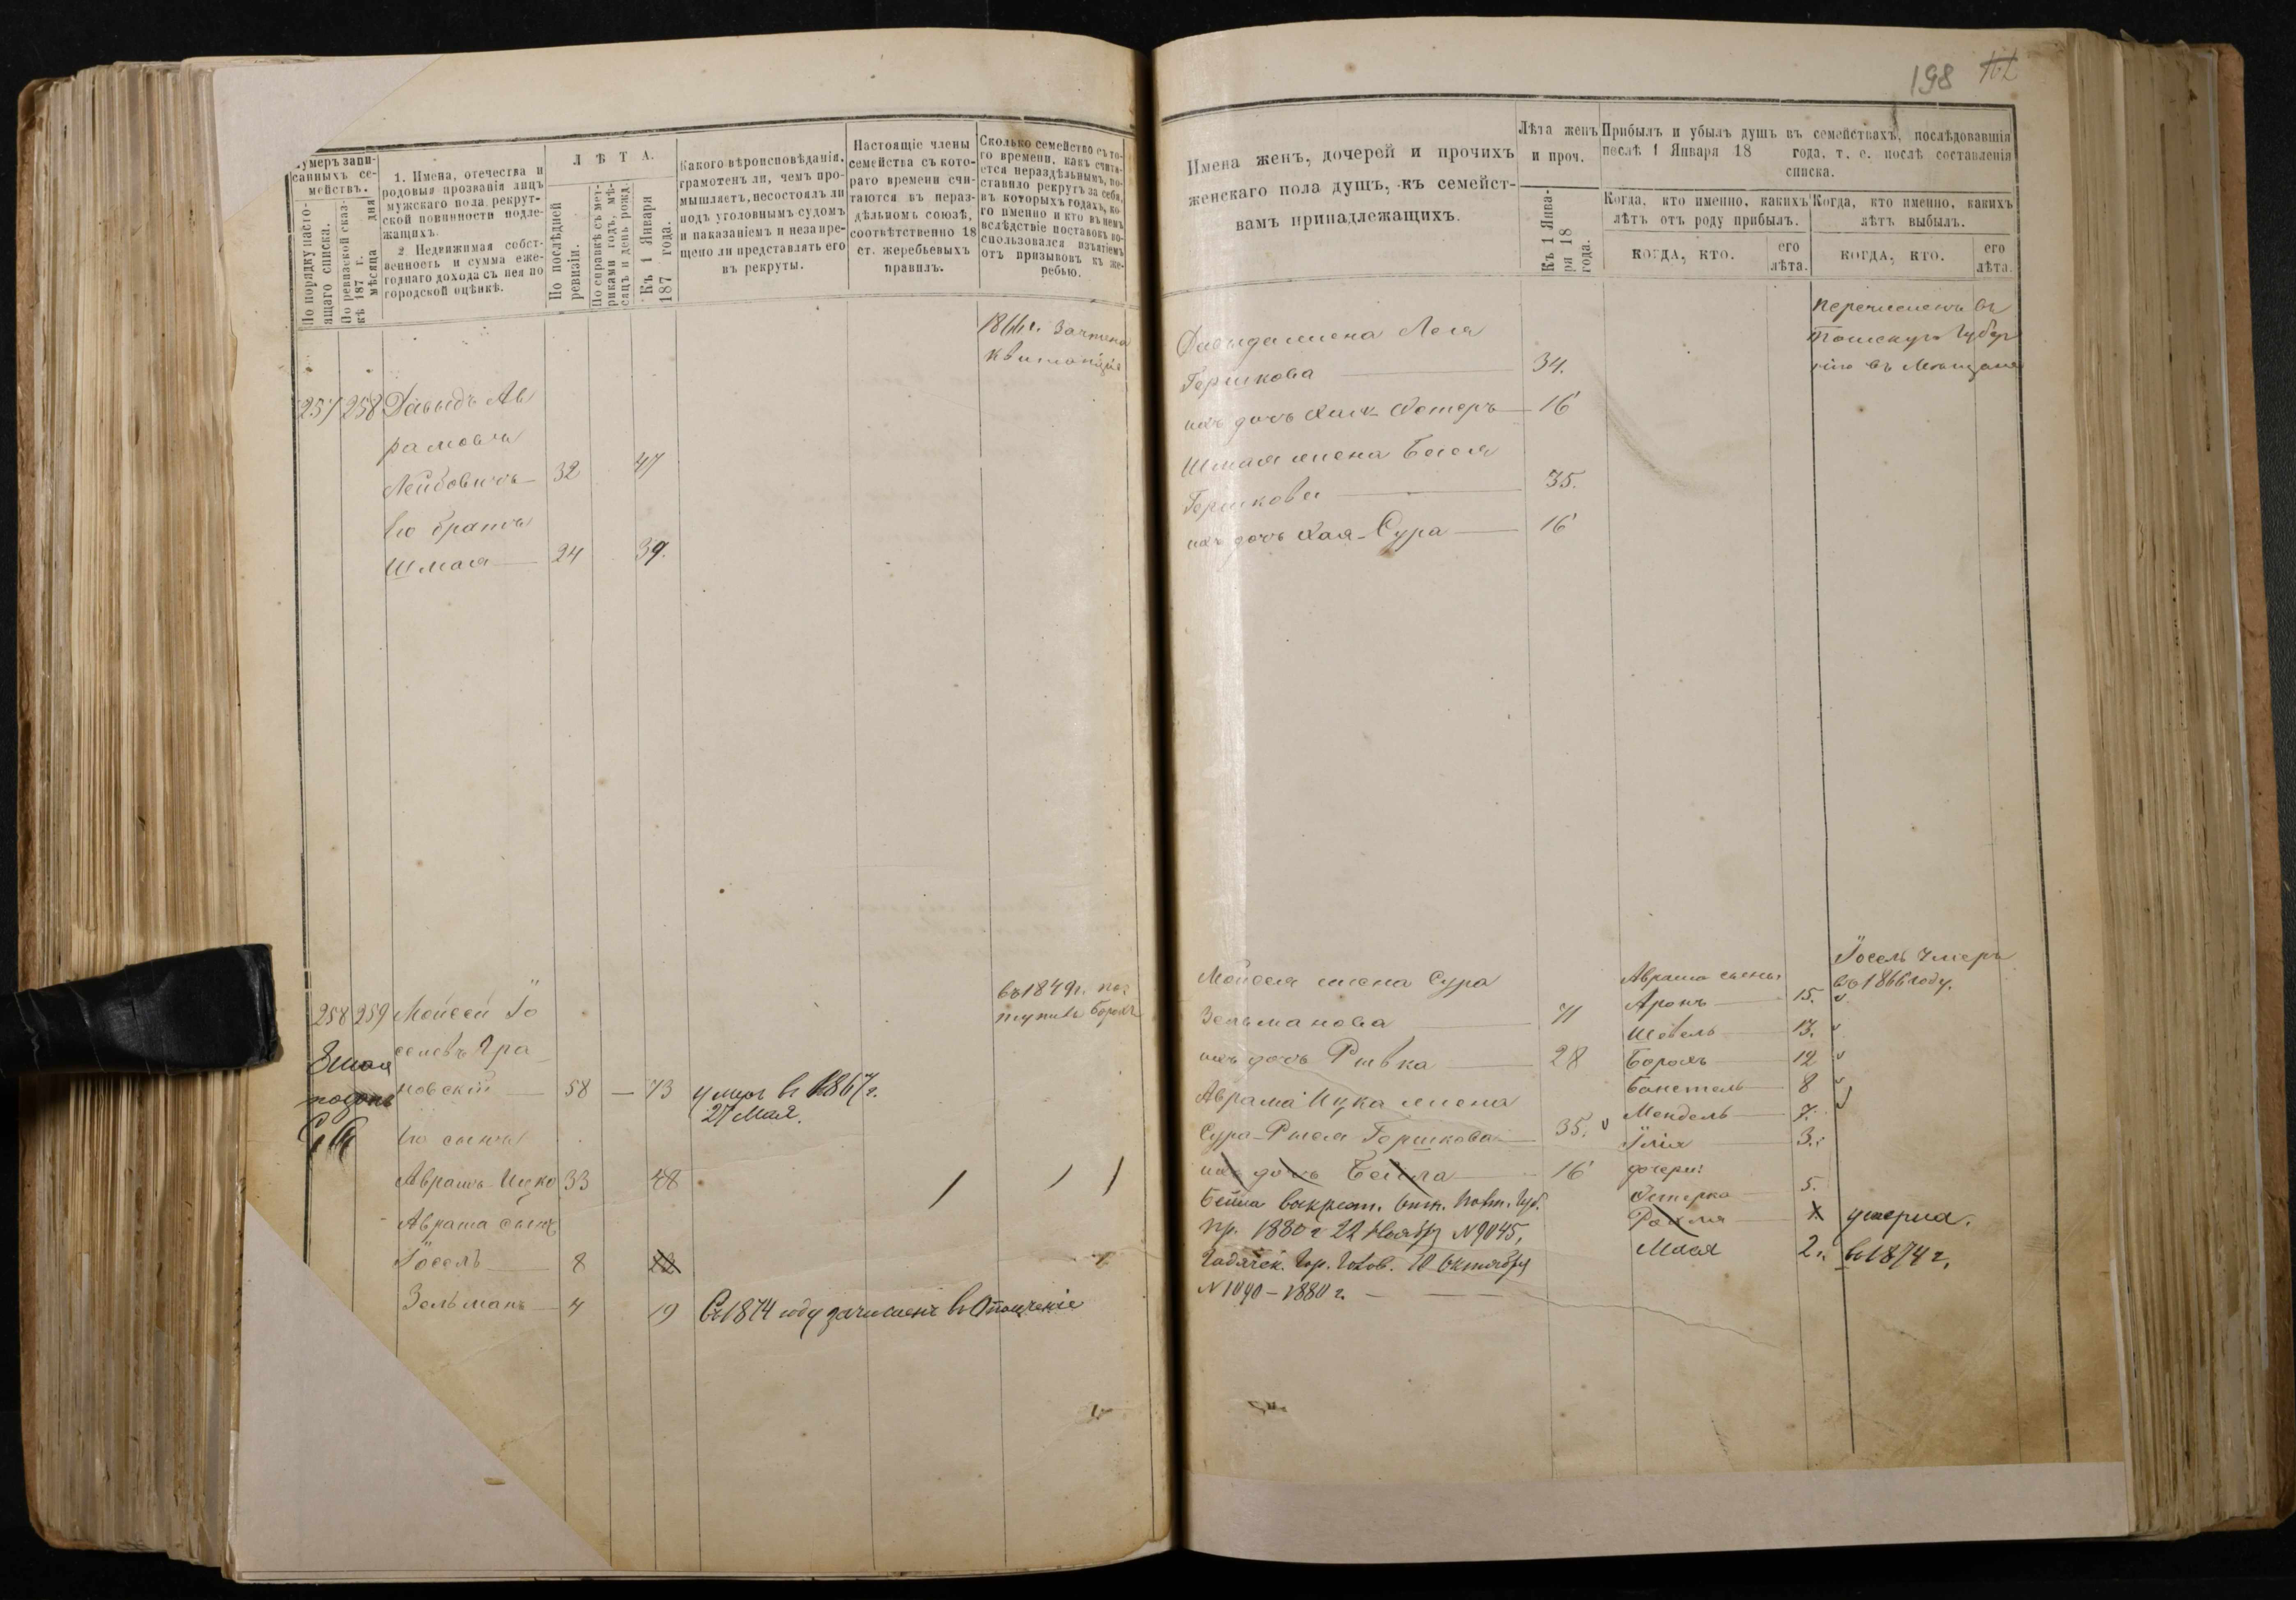 198
умеръ запи-
санныхъ се-
мействъ.
По порядку насто-
ящаго списка.
По ревизской сказ-
кѣ 187 г.
мѣсяца дня
1. Имена, отечества и
родовыя прозванія лицъ
мужскаго пола, рекрут-
ской повинности подле-
жащихъ.
2. Недвижимая собст-
венность и сумма еже-
годнаго дохода съ нея по
городской оцѣнкѣ.
ЛѢТА.
По послѣдней
ревизіи.
По справкѣ съ мет-
риками годъ, мѣ-
сяцъ и день рожд.
Къ 1 Января
187 года.
Какого вѣроисповѣданія,
грамотенъ ли, чемъ про-
мышляетъ, несостоялъ ли
подъ уголовнымъ судомъ
и наказаніемъ и незапре-
щено ли представлять его
въ рекруты.
Настоящіе члены
семейства съ кото-
раго времени счи-
таются въ нераз-
дѣльномъ союзѣ,
соотвѣтственно 18
ст. жеребьевыхъ
правилъ.
Сколько семейство съ то-
го времени, какъ счита-
ется нераздѣльнымъ, по-
ставило рекрутъ за себя,
въ которыхъ годахъ, ко-
го именно и кто въ немъ
вслѣдствіе поставокъ во-
спользовался изъятіемъ
отъ призывовъ къ же-
ребью.
зачтена
квитанція
257 258 Давыдъ Аб
рамовъ
Лейбовичъ 32 47
Его братъ
Шмая 24 39.
въ 1849г. пос
тупилъ Борохъ
258 259 Мойсей Іо
селевъ Гра
новскій 58 — 73 умеръ въ 1867 г.
27 Мая.
Его сынъ
Абрамъ-Ицко 33 48
Абрама сынъ
Іосель 8
Зельманъ 4 19 Въ 1874 году зачисленъ въ Ополченіе
Имена женъ, дочерей и прочихъ
женскаго пола душъ, къ семейст-
вамъ принадлежащихъ.
Лѣта женъ
и проч.
Къ 1 Янва-
ря 18
года.
Прибыль и убыль душъ въ семействахъ, послѣдовавшія
послѣ 1 Января 18 года, т. е. послѣ составленія
списка.
Когда, кто именно, какихъ
лѣтъ отъ роду прибылъ.
КОГДА, КТО.
его
лѣта.
Когда, кто именно, какихъ
лѣтъ выбылъ.
КОГДА, КТО.
его
лѣта.
Перечисленъ въ
Томскую Губер
нію въ Мещане
Давыда жена Лея
Гершкова 34.
ихъ дочь Хася-Эстеръ 16
Шмая жена Бейля
Гершкова 35.
ихъ дочь Хая-Сура 16
Мойсея жена Сура
Зельманова 71
ихъ дочь Ривка 28
Абрама Ицка жена
Сура-Рися Гершкова 35.
ихъ дочь Бейла 16
Бейла воскрест. Опт. Полт. Губ.
Пр. 1880 г 22 Ноября N 9045,
Гадячск. Гор. Голов. 10 Октября
N 1090 – 1880 г.
Абрама сыны:
Аронъ 15.
Шевель 13.
Борохъ 12
8
Мендель 7.
Илія 3.
дочери:
Эстерка 5.
Рахля 1. умерла.
Мася 2. въ 1874 г.
Іосель умеръ
въ 1866 году.